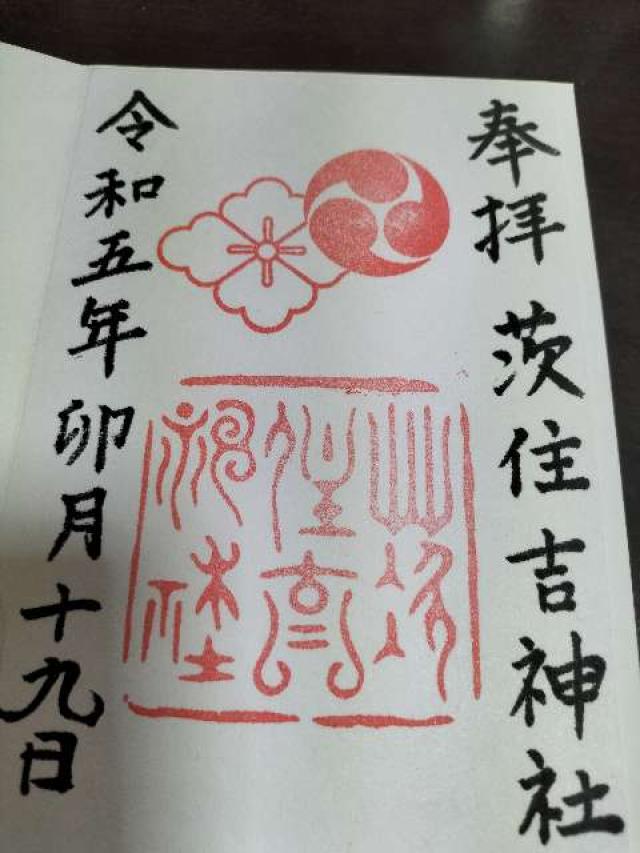 奉拝
茨住吉神社
令和五年卯月十九日